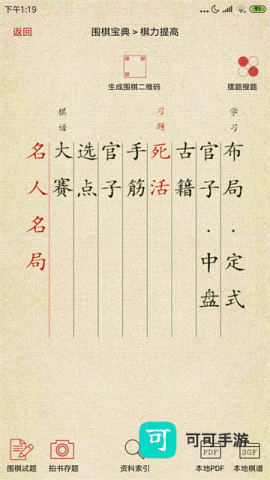 下午1:19
91
返回
围棋宝典 > 棋力提高
生成围棋二维码
摆题搜题
学习
布局·定式
官子·中盘
古籍
习题
死活
手筋
官子
选点
棋谱
大赛
名人名局
围棋试题
拍书存题
资料索引
PDF
本地PDF
SGF
本地棋谱
可
可可手游